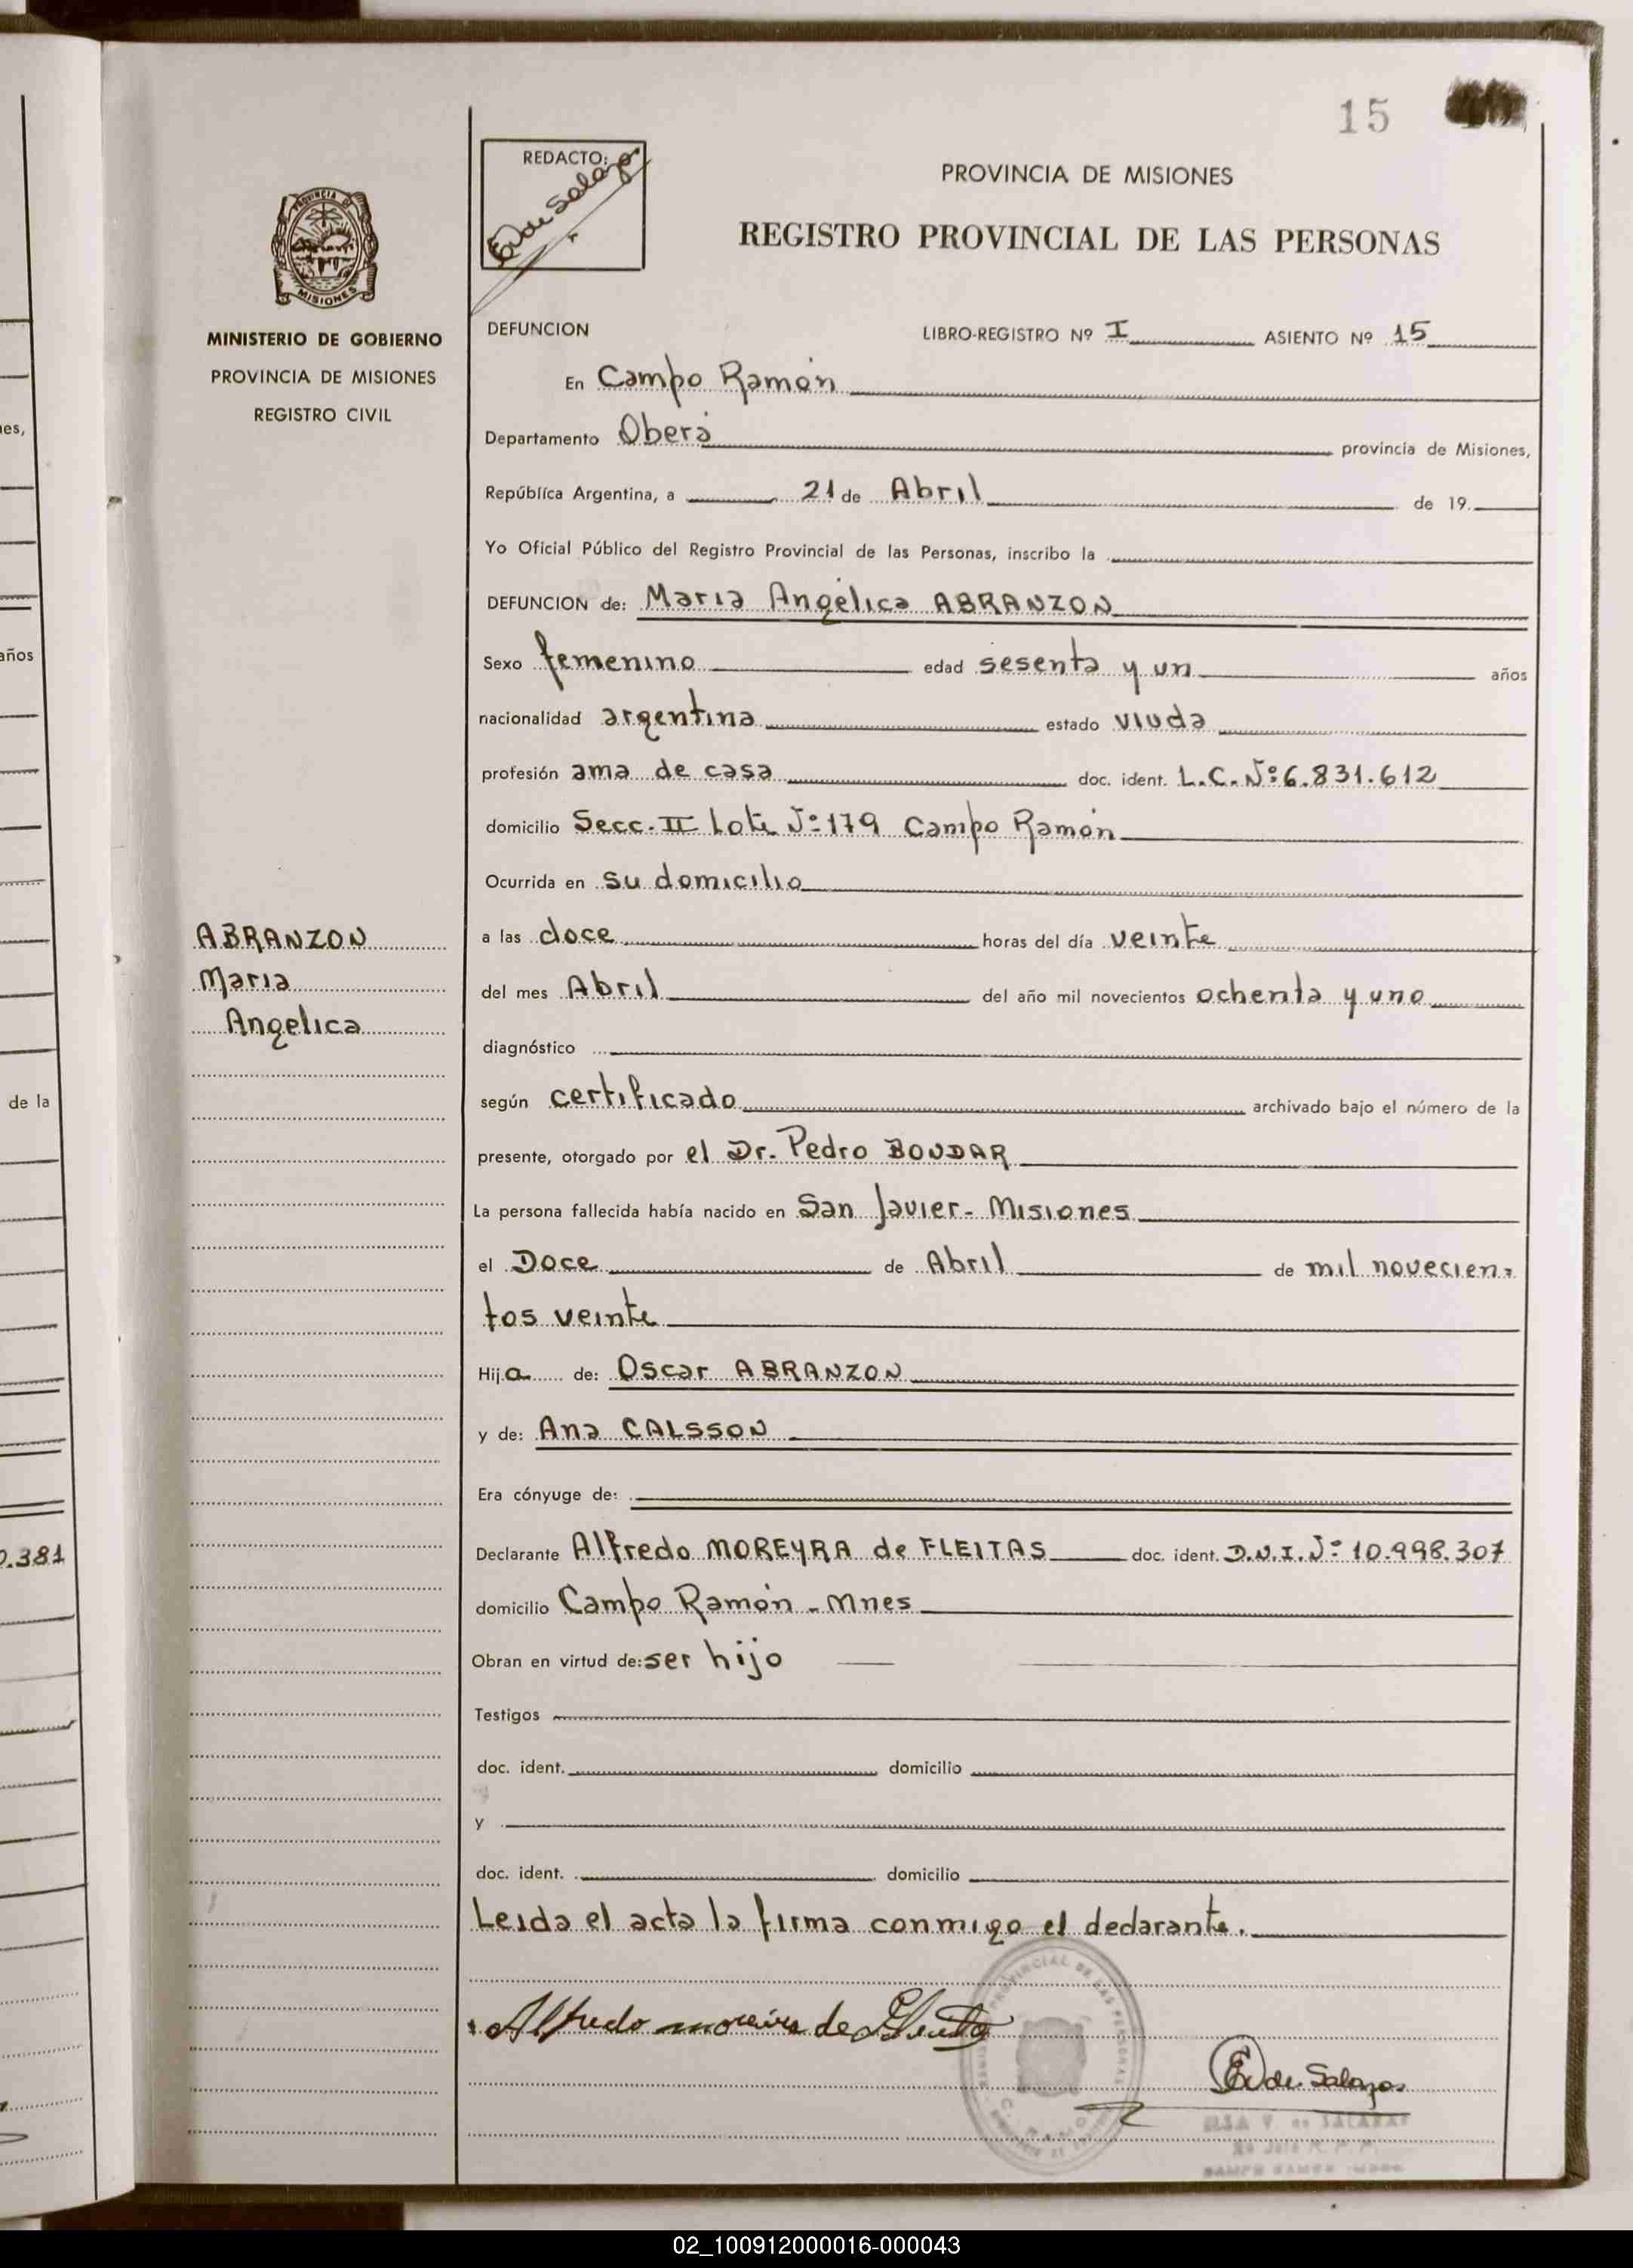 15
REDACTO:
E V de Salazar
PROVINCIA DE MISIONES
REGISTRO PROVINCIAL DE LAS PERSONAS
PROVINCIA DE
MISIONES
MINISTERIO DE GOBIERNO
PROVINCIA DE MISIONES
REGISTRO CIVIL
DEFUNCION
LIBRO-REGISTRO Nº I ASIENTO Nº 15
En Campo Ramón
Departamento Oberá provincia de Misiones,
República Argentina, a 21 de Abril de 19
Yo Oficial Público del Registro Provincial de las Personas, inscribo la
DEFUNCION de: Maria Angélica ABRANZON
Sexo femenino edad sesenta y un años
nacionalidad argentina estado viuda
profesión ama de casa doc. ident. L.C. Nº 6.831.612
domicilio Secc. II Lote Nº 179 Campo Ramón
Ocurrida en su domicilio
a las doce horas del día veinte
del mes Abril del año mil novecientos ochenta y uno
ABRANZON
Maria
Angelica
diagnóstico
según certificado archivado bajo el número de la
presente, otorgado por el Dr. Pedro BONDAR
La persona fallecida había nacido en San Javier - Misiones
el Doce de Abril de mil novecien=
tos veinte
Hija de: Oscar ABRANZON
y de: Ana CALSSON
Era cónyuge de:
Declarante Alfredo MOREYRA de FLEITAS doc. ident. D.N.I. Nº 10.998.307
domicilio Campo Ramón - Mnes
Obran en virtud de: ser hijo
Testigos
doc. ident. domicilio
y
doc. ident. domicilio
Leida el acta la firma conmigo el declarante.
Alfredo moreira de Fleita
E V de Salazar
ELSA V. de SALAZAR
nes,
años
de la
0.381
02_100912000016-000043